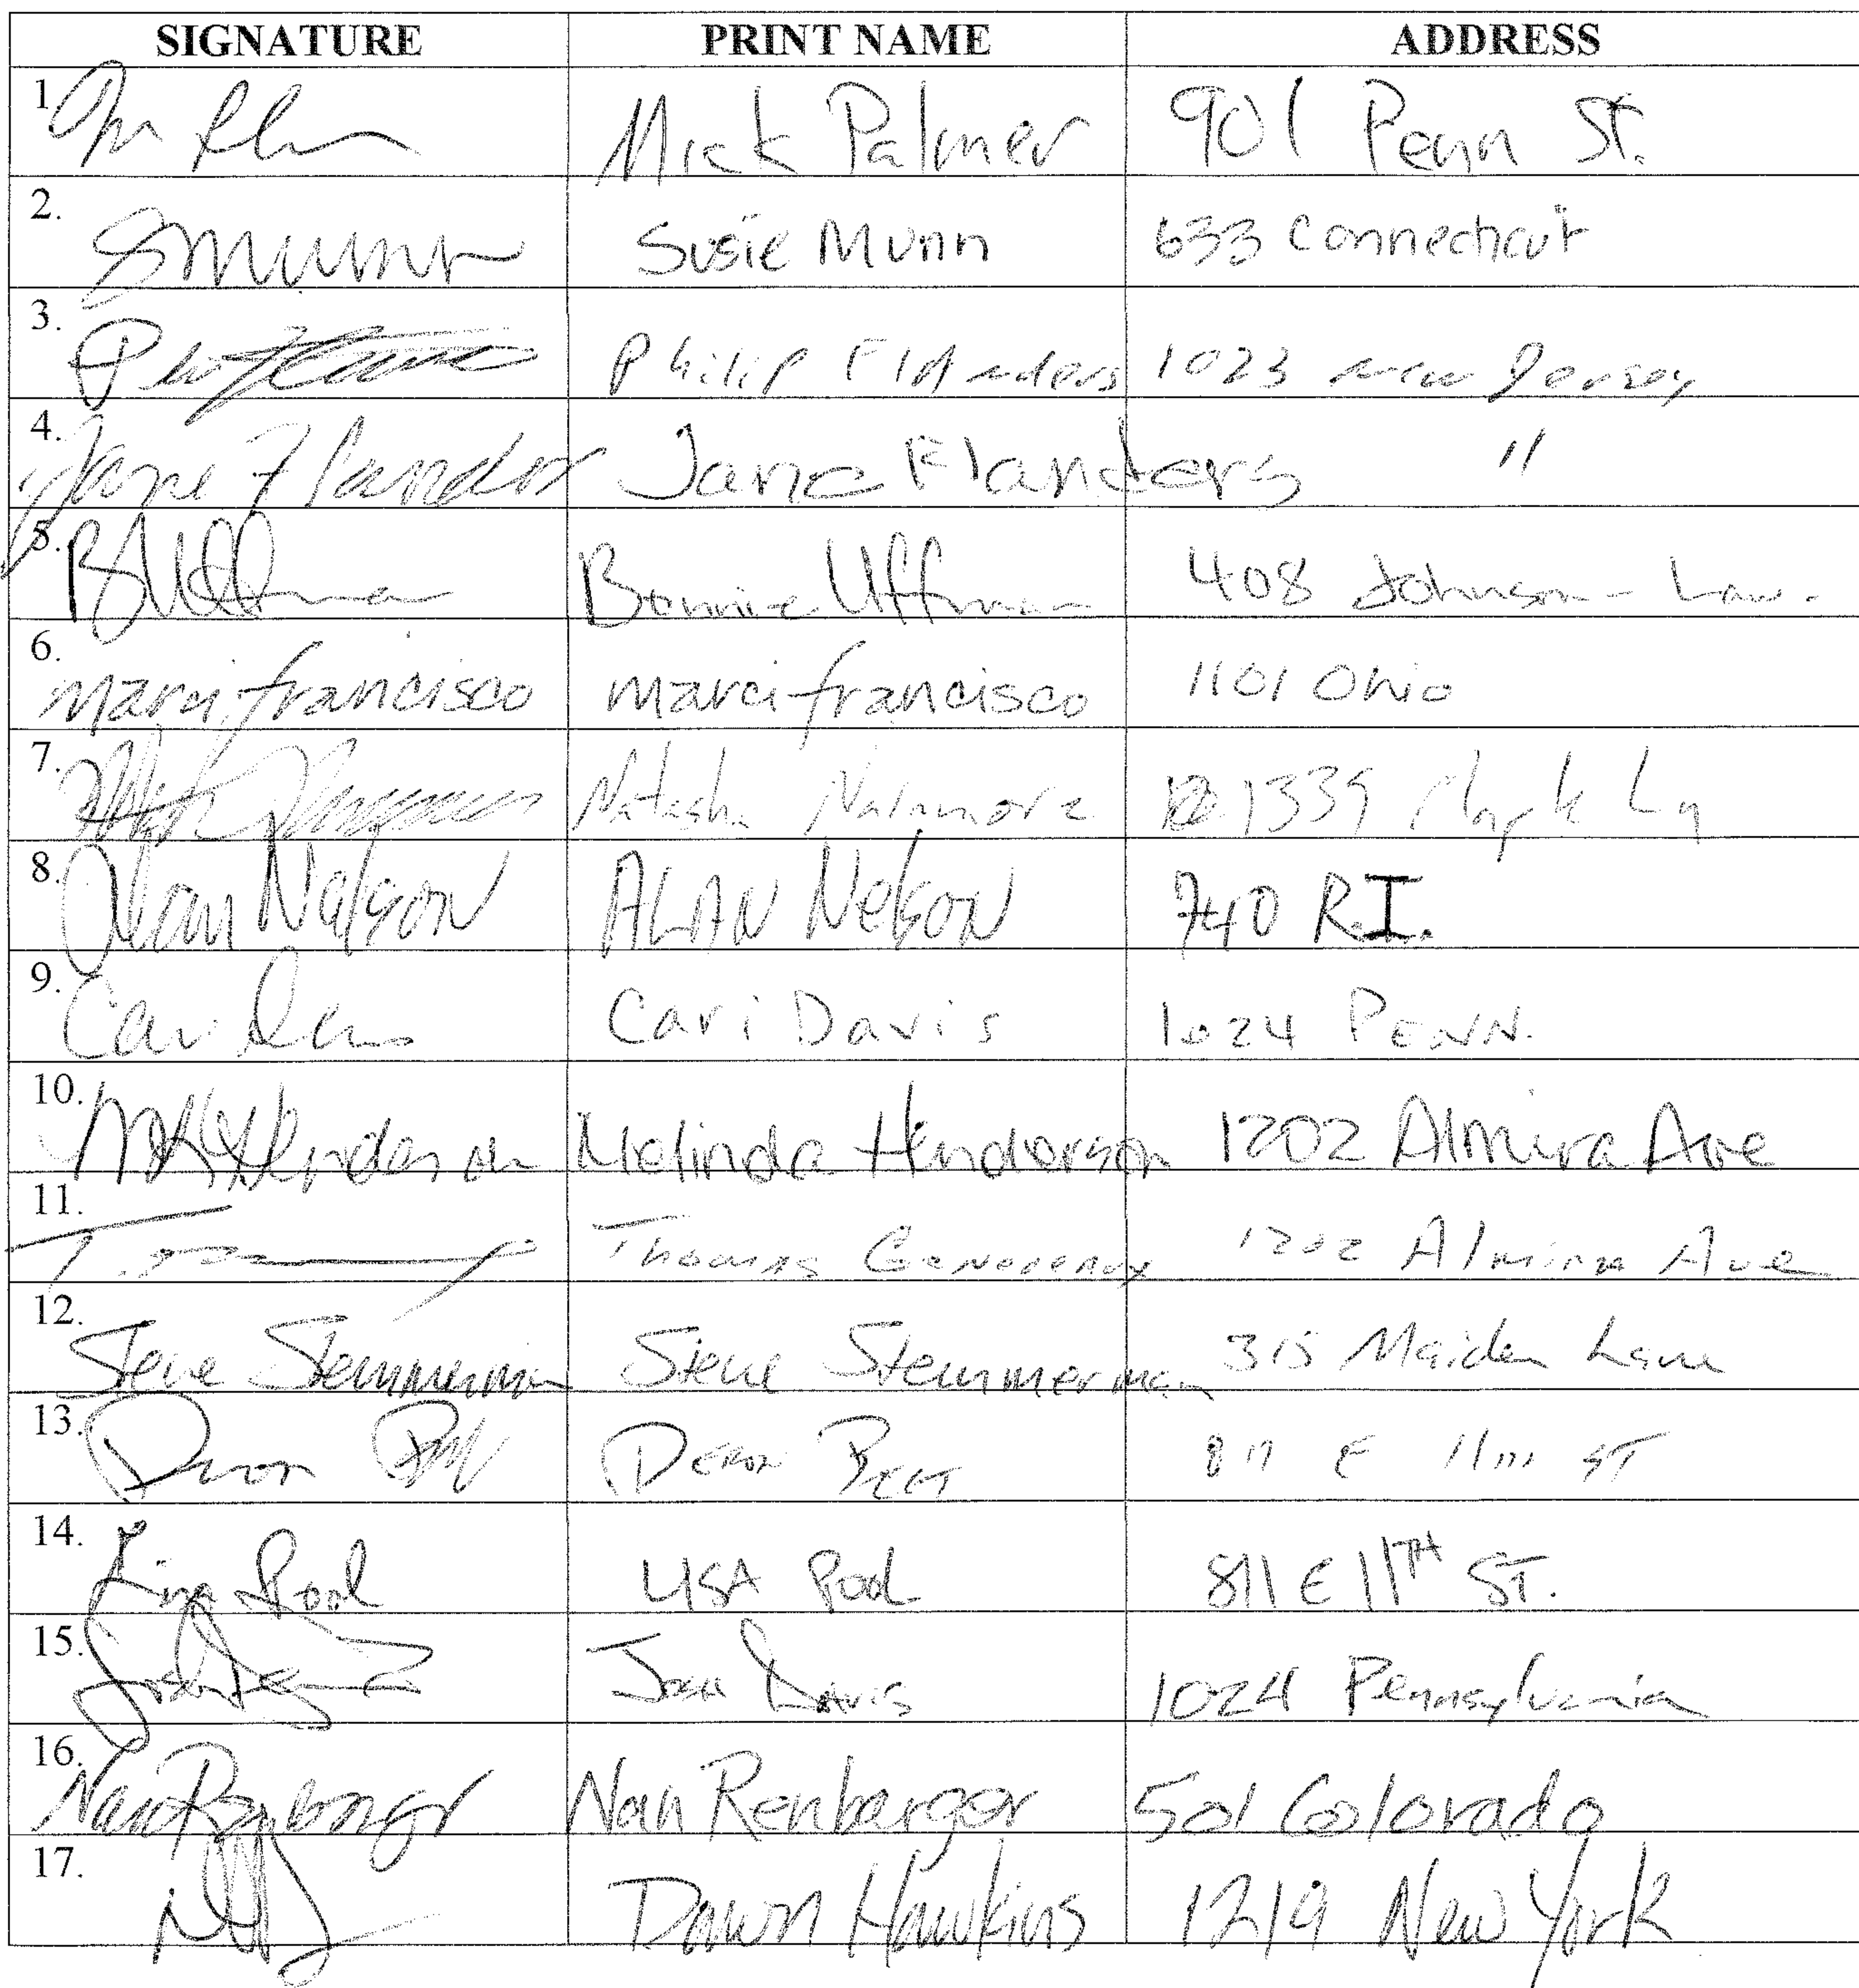 SIGNATURE PRINT NAME ADDRESS
1. Mick Palmer 901 Penn St.
2. SMunn Susie Munn 633 Connecticut
3. Philip Flanders 1023 New Jersey
4. Jane Flanders Jane Flanders "
5. B Uffman Bonnie Uffman 408 Johnson - Law.
6. marci francisco marci francisco 1101 Ohio
7. Natasha 1339 Ln
8. Alan Nelson ALAN NelsoN 740 R.I.
9. Cari Davis Cari Davis 1024 PENN.
10. Henderson Melinda Henderson 1202 Almira Ave
11. Thomas 1202 Almira Ave
12. Steve Stemmerman Steve Stemmerman 315 Maiden Lane
13. Deron DERON E 11TH ST
14. Lisa Pool LISA Pool 811 E 11TH ST.
15. Josh Davis Josh Davis 1024 Pennsylvania
16. Nan Renbarger Nan Renbarger 501 Colorado
17. Dawn Hawkins 1219 New York